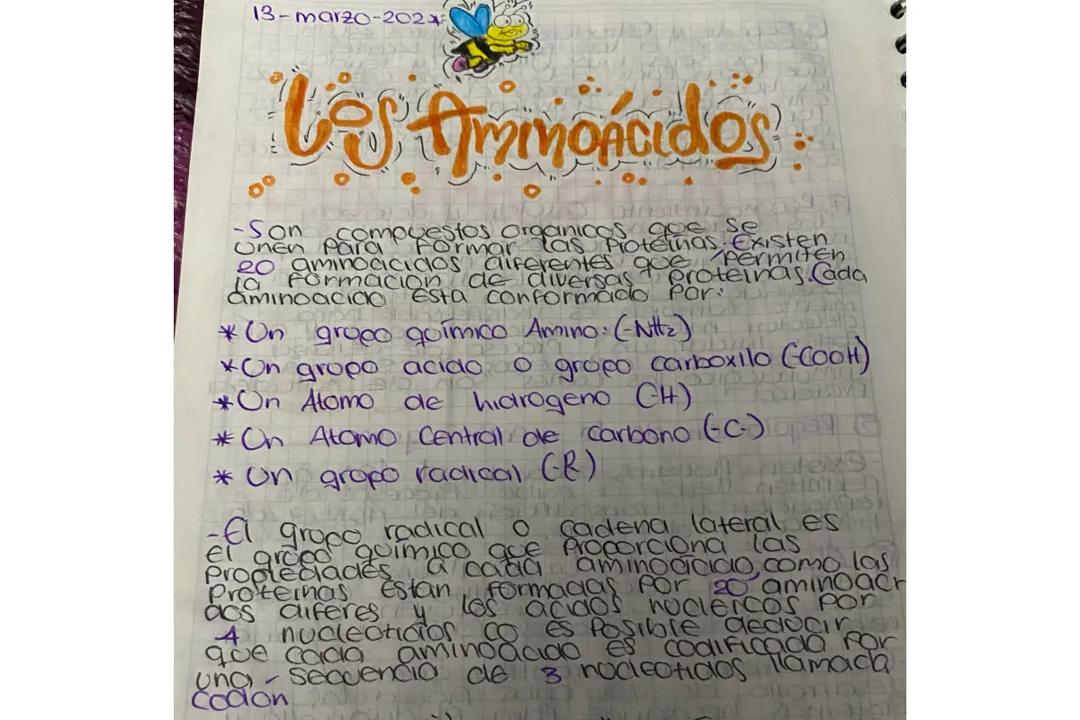 13-marzo-202
Los Aminoácidos
-Son compuestos organicos que se
unen para formar las Proteinas. Existen
20 aminoacidos diferentes que permiten
la Formacion de diversas proteinas. Cada
aminoacido esta conformado por:
* Un grupo químico Amino: (-NH2)
* Un grupo acido o grupo carboxilo (-COOH)
* Un Atomo de hidrogeno (-H)
* Un Atomo Central de carbono (-C-)
* Un grupo radical (-R)
-El grupo radical o cadena lateral es
el grupo químico que proporciona las
Propiedades a cada aminoacido, como las
Proteinas estan formadas por 20 aminoaci
dos diferes y los acidos nucleicos por
4 nucleotidos co es posible deducir
que cada aminoacido es codificado por
una secuencia de 3 nucleotidos llamada
Codon